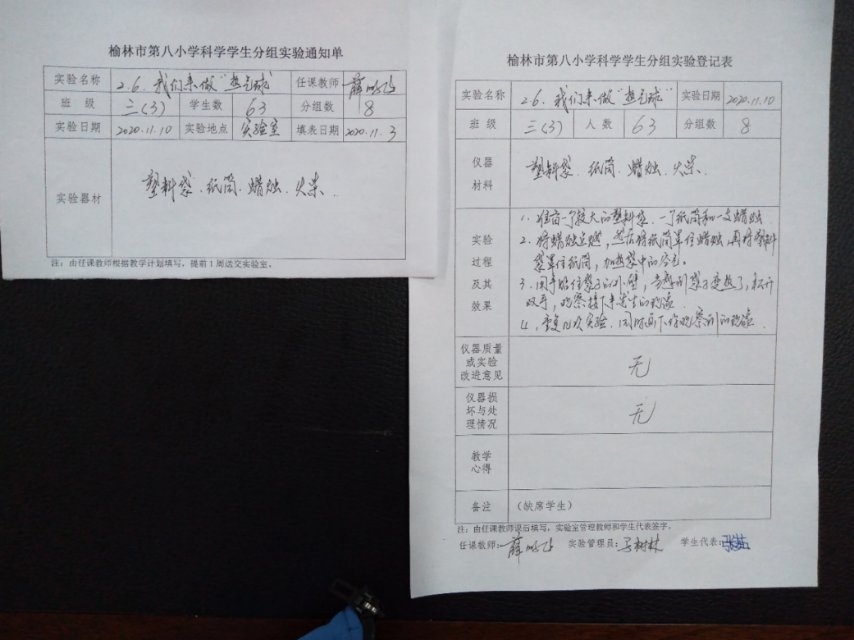 榆林市第八小学科学学生分组实验通知单
实验名称 2.6.我们来做"热气球" 任课教师 薛
班 级 三(3) 学生数 63 分组数 8
实验日期 2020.11.10 实验地点 实验室 填表日期 2020.11.3
实验器材 塑料袋、纸筒、蜡烛、火柴.
注:由任课教师根据教学计划填写,提前1周送交实验室。
榆林市第八小学科学学生分组实验登记表
实验名称 2.6.我们来做"热气球" 实验日期 2020.11.10
班 级 三(3) 人 数 63 分组数 8
仪器
材料
塑料袋、纸筒、蜡烛、火柴.
实验
过程
及其
效果
1、准备一个较大的塑料袋、一个纸筒和一支蜡烛.
2、将蜡烛点燃,然后将纸筒罩住蜡烛,再将塑料
袋罩住纸筒,加热袋中的空气。
3、用手贴住袋子的外壁,当感到袋子变热了,松开
双手,观察接下来发生的现象.
4、重复几次实验.同时画下你观察到的现象.
仪器质量
或实验
改进意见
无
仪器损
坏与处
理情况
无
教学
心得
备注 (缺席学生)
注:由任课教师课后填写,实验室管理教师和学生代表签字。
任课教师: 薛 实验管理员: 树林 学生代表: